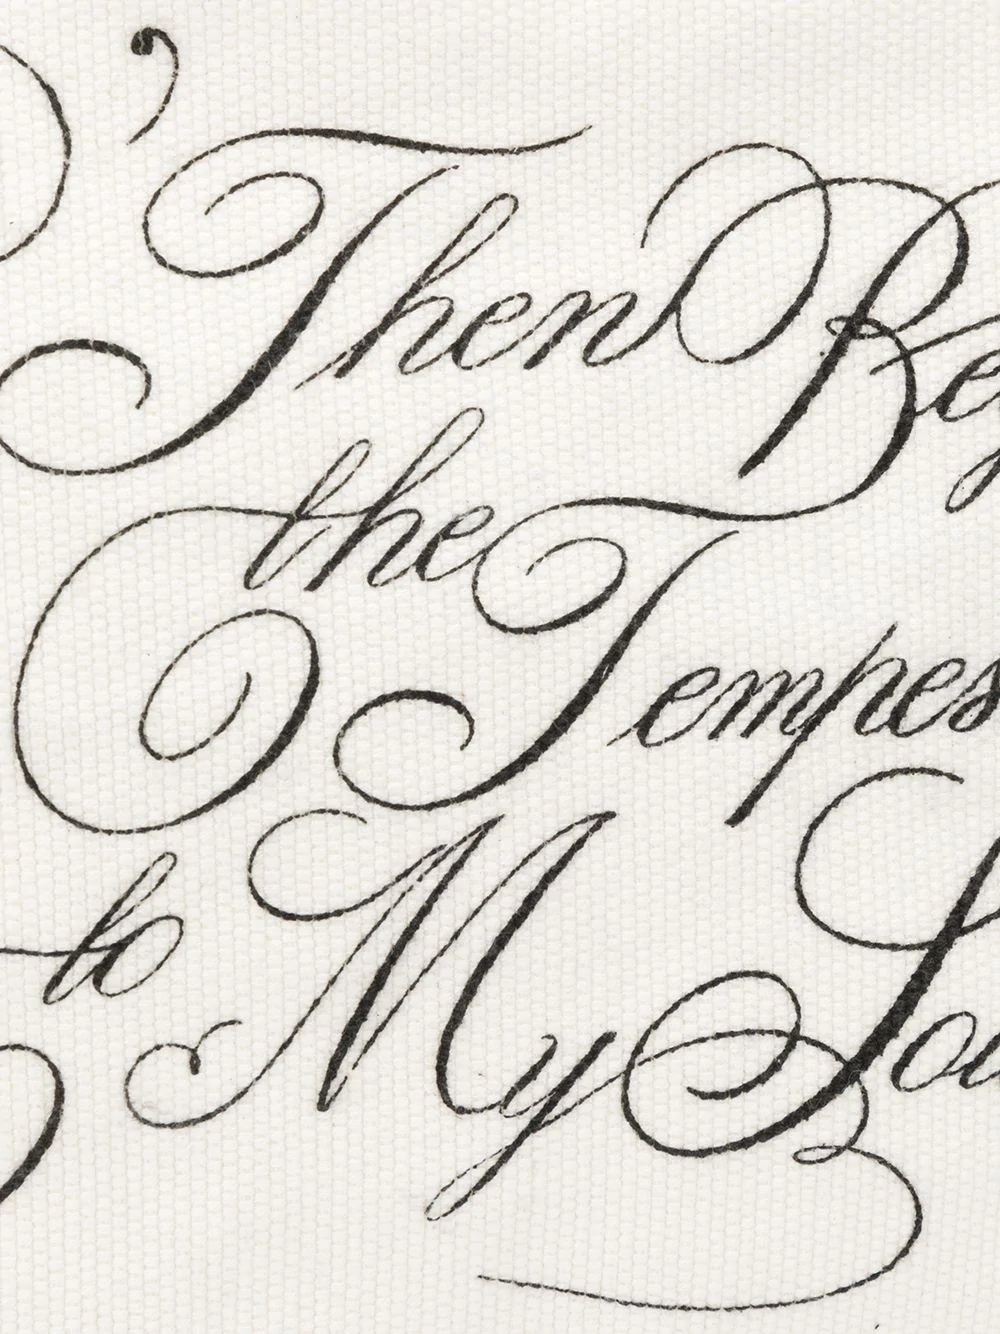 Then Beg
the Tempes
to My Sou